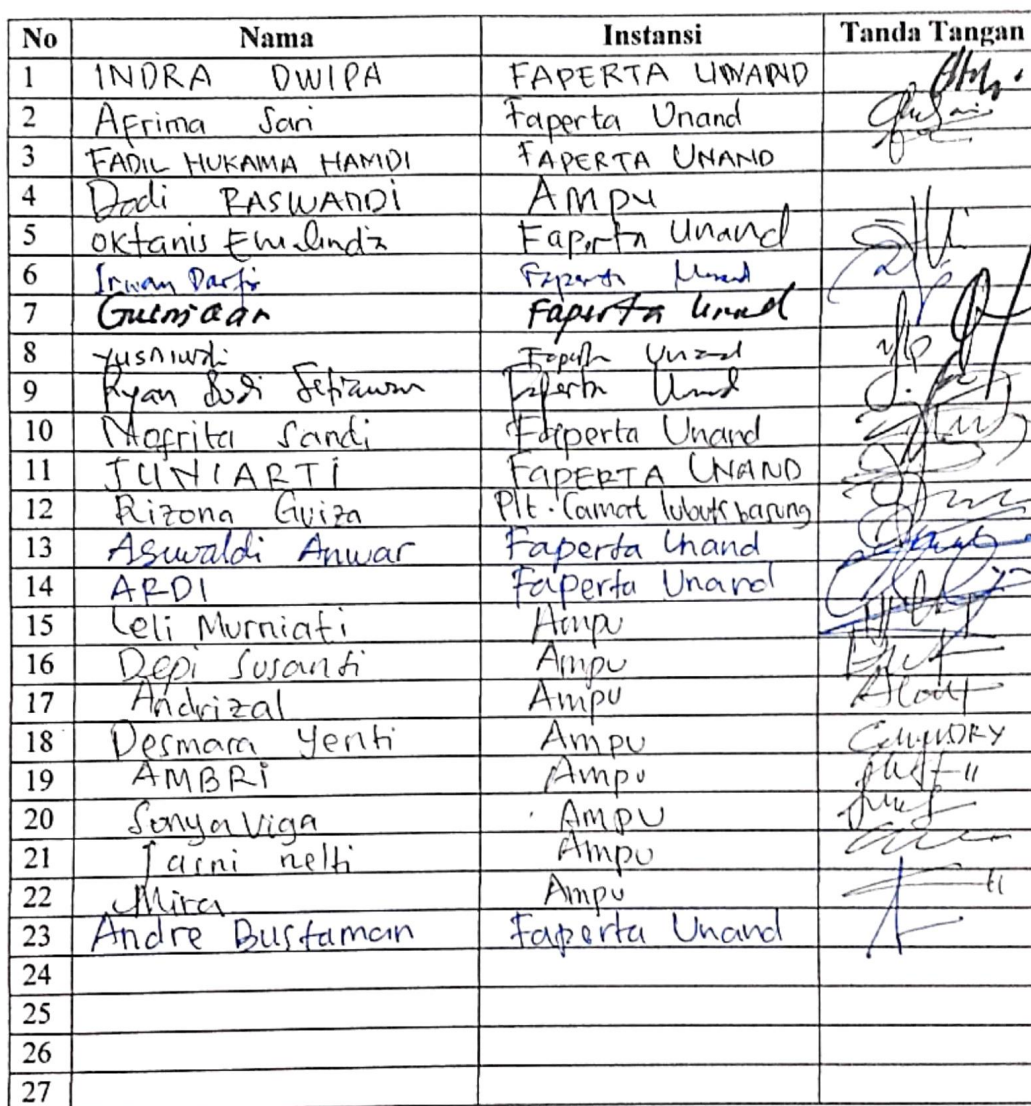 No Nama Instansi Tanda Tangan
1 INDRA DWIPA FAPERTA UNAND
2 Afrima Sari Faperta Unand
3 FADIL HUKAMA HAMDI FAPERTA UNAND
4 Dodi RASWANDI Ampu
5 Oktanis Emalinda Faperta Unand
6 Irwan Darfis Faperta Unand
7 Gusniwar Faperta Unand
8 Yusniwati Faperta Unand
9 Ryan Budi Setiawan Faperta Unand
10 Mofrita Sandi Faperta Unand
11 JUNIARTI FAPERTA UNAND
12 Rizona Guiza Plt. Camat lubuk basung
13 Aswaldi Anwar Faperta Unand
14 ARDI Faperta Unand
15 Leli Murniati Ampu
16 Depi Susanti Ampu
17 Andrizal Ampu
18 Desmara Yenti Ampu
19 AMBRI Ampu
20 Sonya Viga Ampu
21 Jasni nelti Ampu
22 Mira Ampu
23 Andre Bustaman Faperta Unand
24
25
26
27